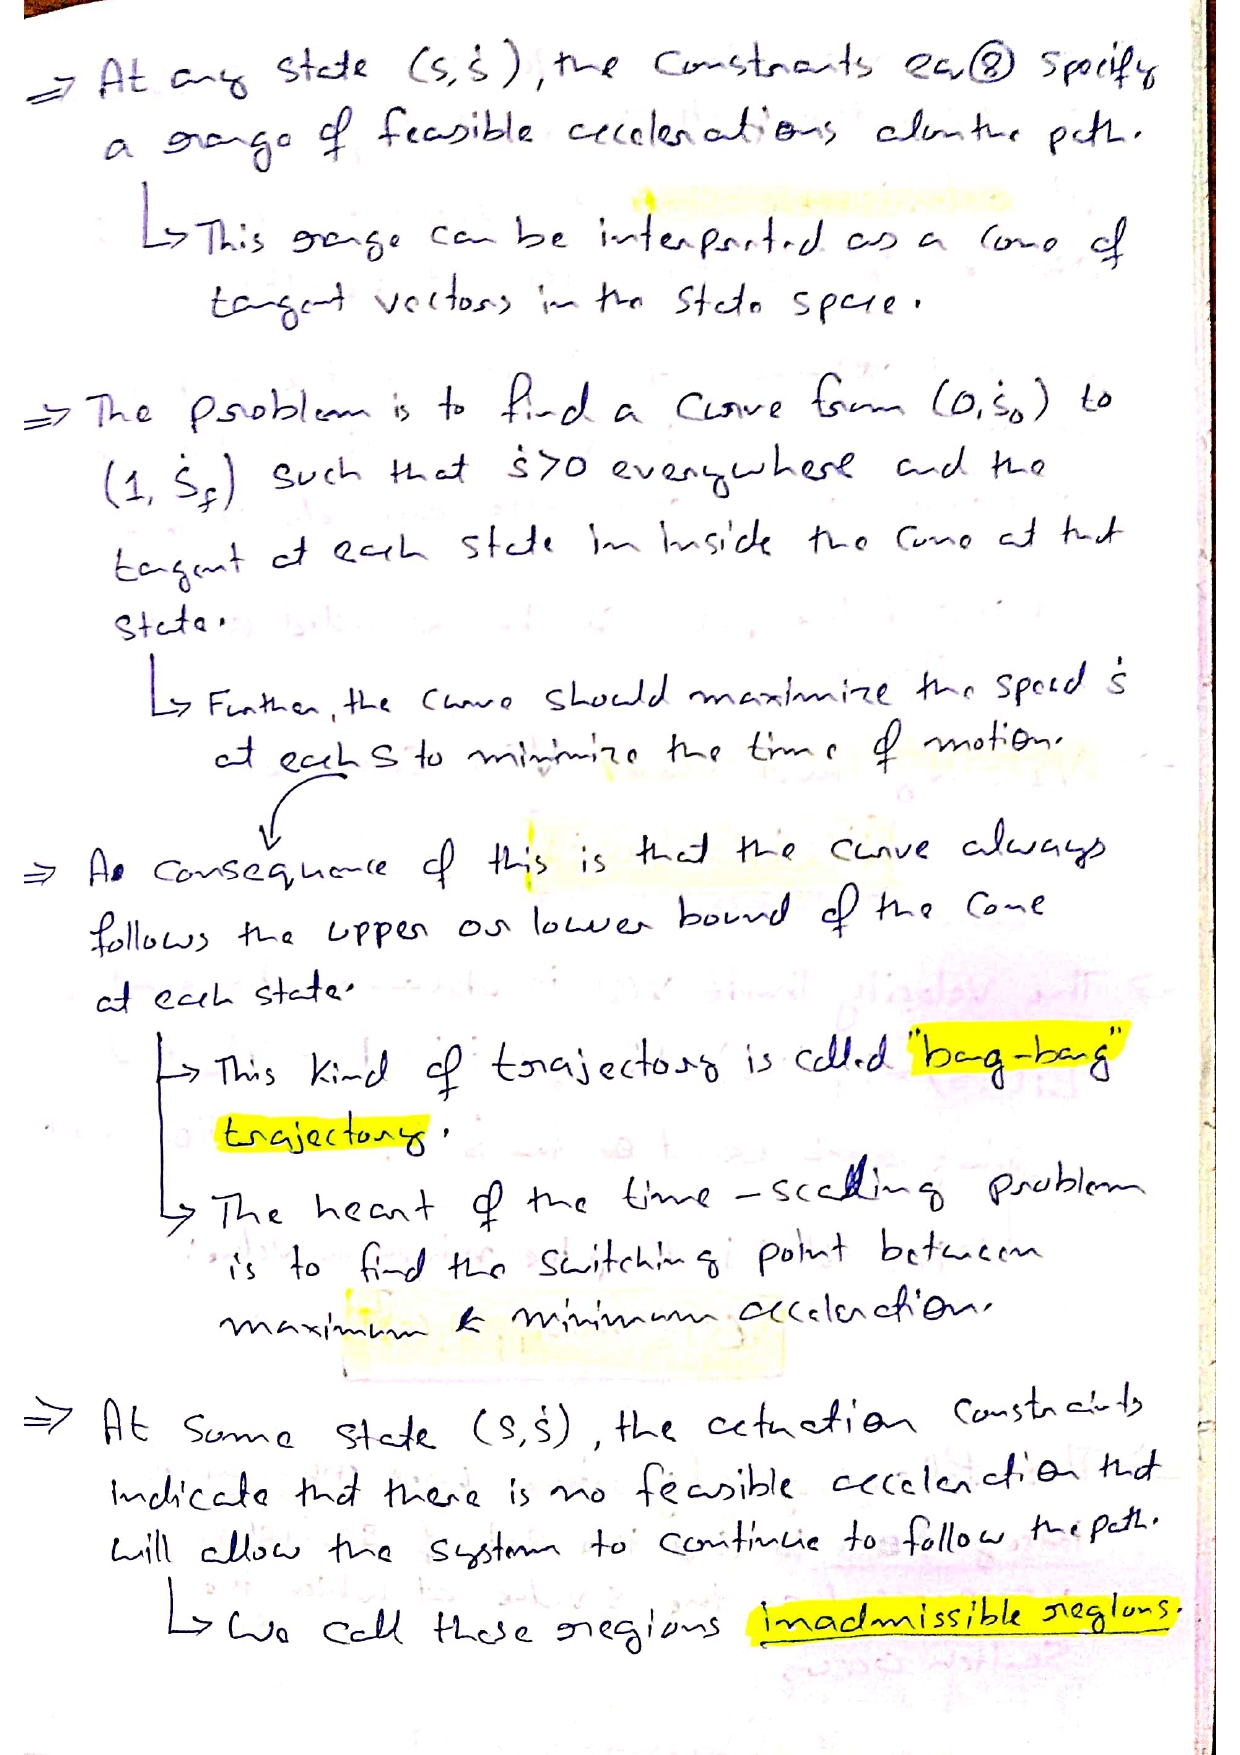 ⇒ At any state (s, ṡ), the constraints eq ⑧ specify
a range of feasible accelerations alonthe path.
↳ This range can be interpreted as a cone of
tangent vectors in the state space.
⇒ The problem is to find a curve from (0, ṡ₀) to
(1, ṡ_f) such that ṡ>0 everywhere and the
tangent at each state in inside the cone at that
state.
↳ Further, the curve should maximize the speed ṡ
at each s to minimize the time of motion.
⇒ A consequence of this is that the curve always
follows the upper or lower bound of the cone
at each state.
↳ This kind of trajectory is called "bang-bang"
trajectory.
↳ The heart of the time-scaling problem
is to find the switching point between
maximum & minimum acceleration.
⇒ At some state (s, ṡ), the actuation constraints
indicate that there is no feasible acceleration that
will allow the system to continue to follow the path.
↳ We call these regions inadmissible regions.